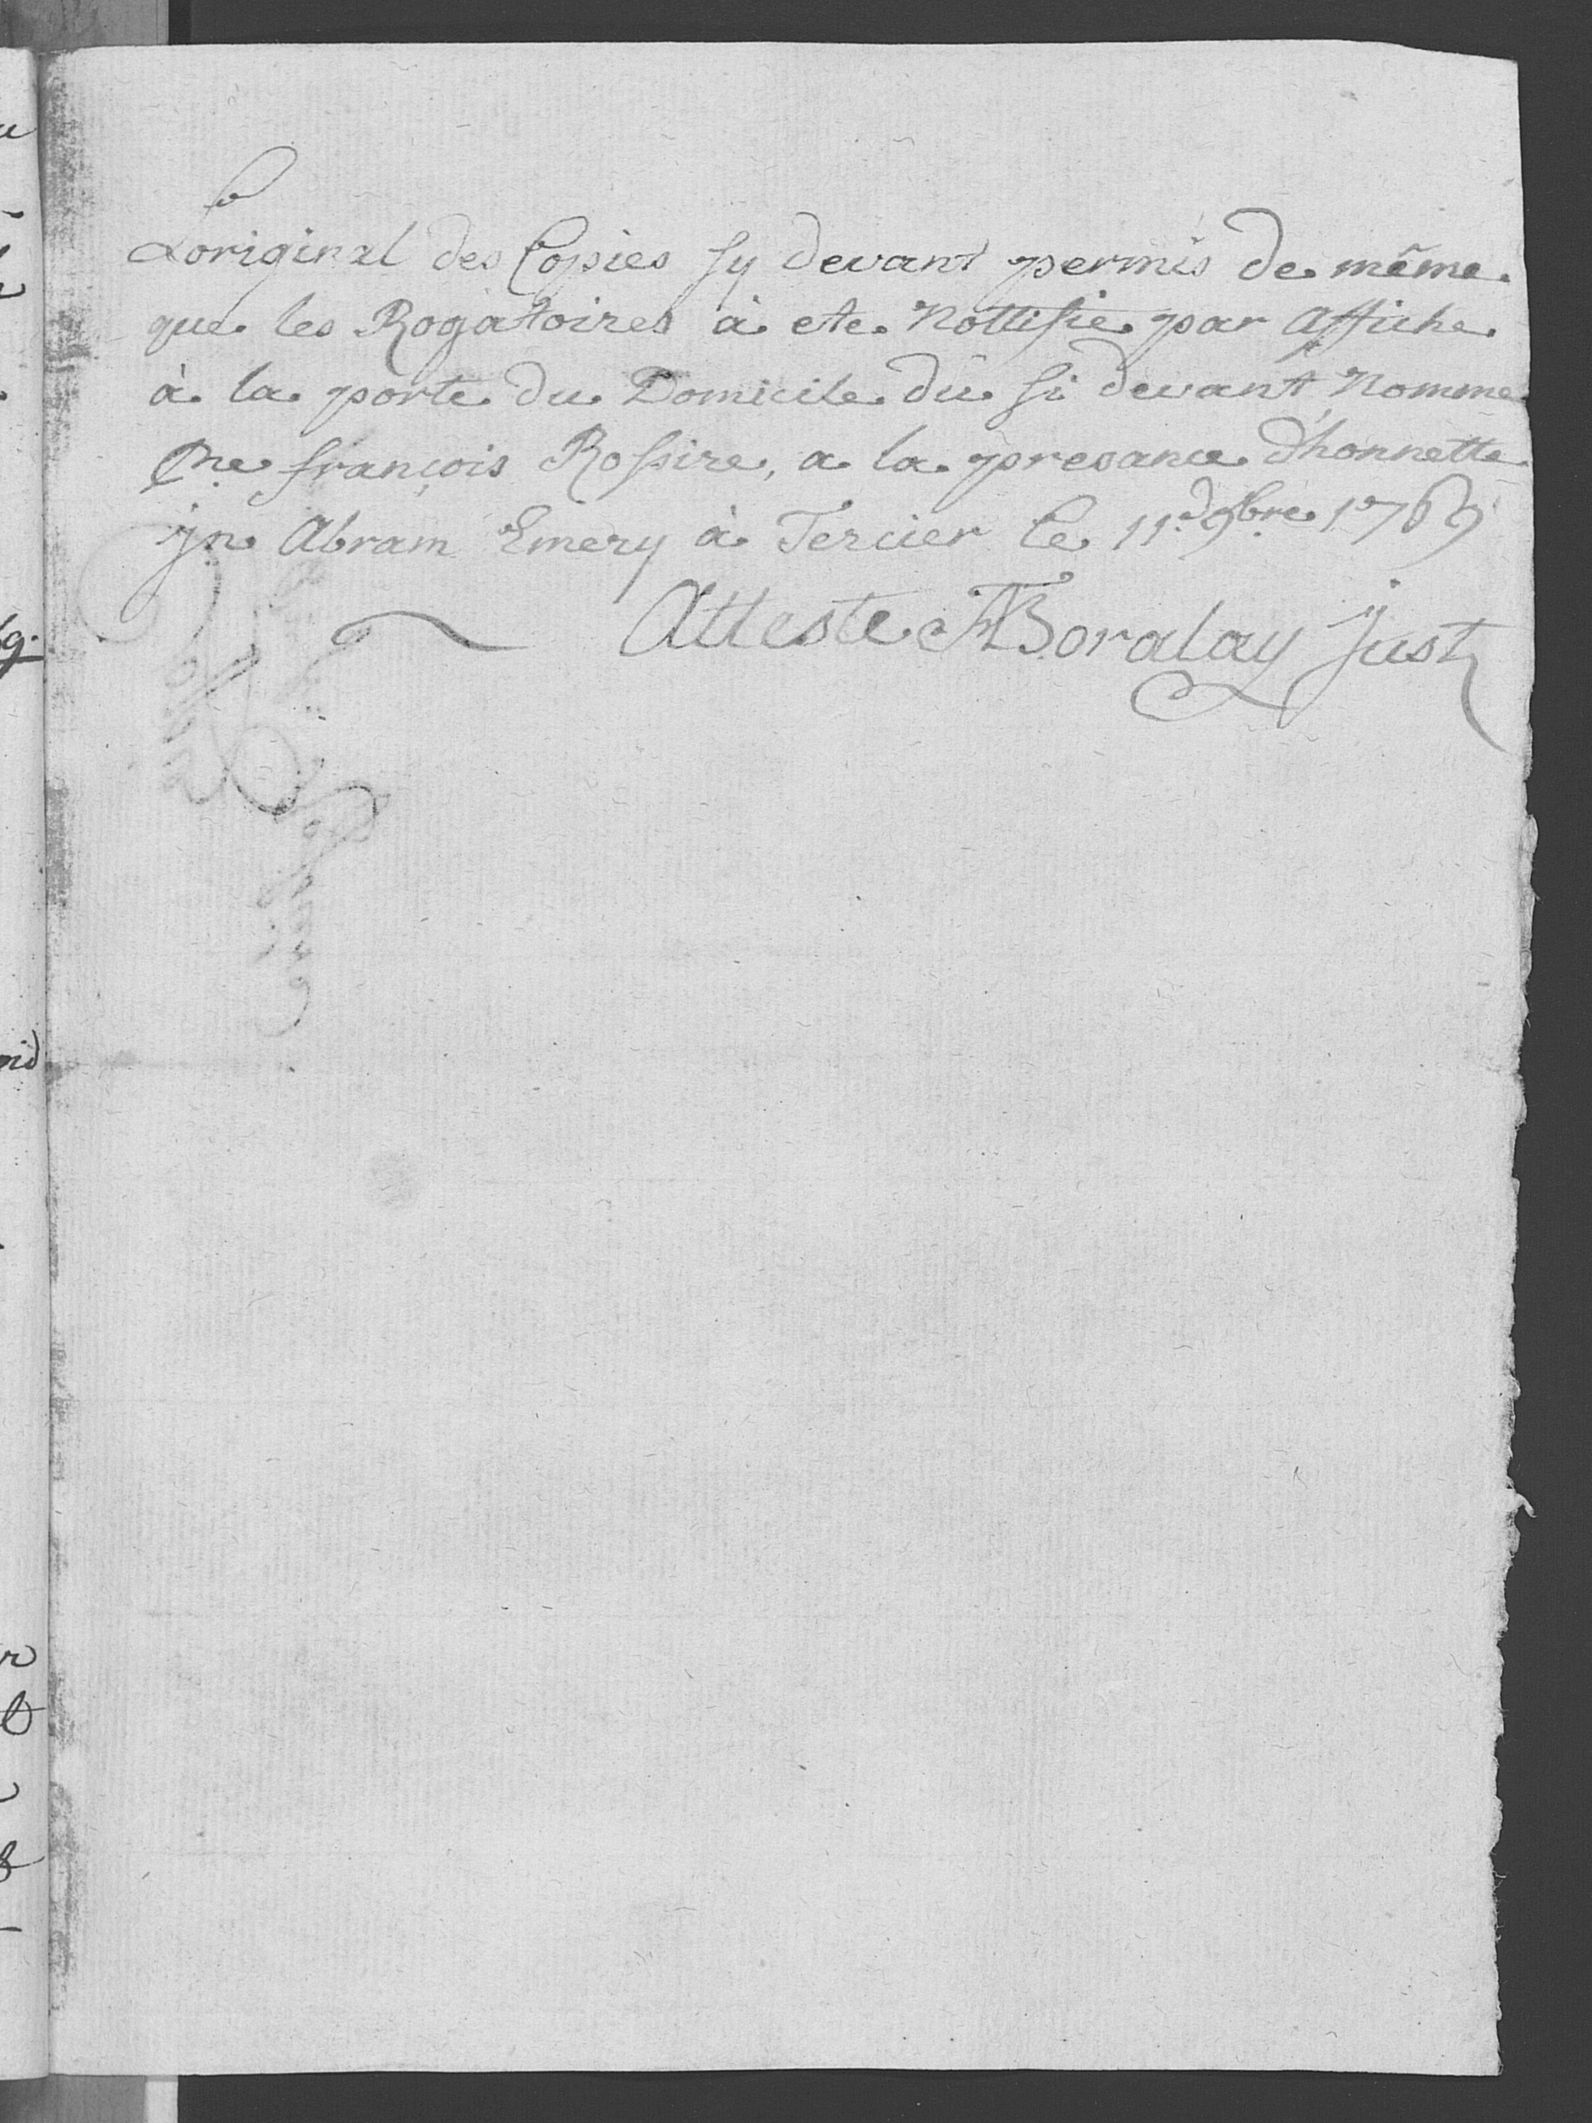 Loriginal des Copies sy devant permis de même
que les Rogatoires à ete Nottifié par Affiche
à la porte du Domicile du si devant Nommé
françois Rossire, a la presance d'honnette
Jn Abram Emery à Tercier le 11e 9bre 1769
Atteste Boralay Just